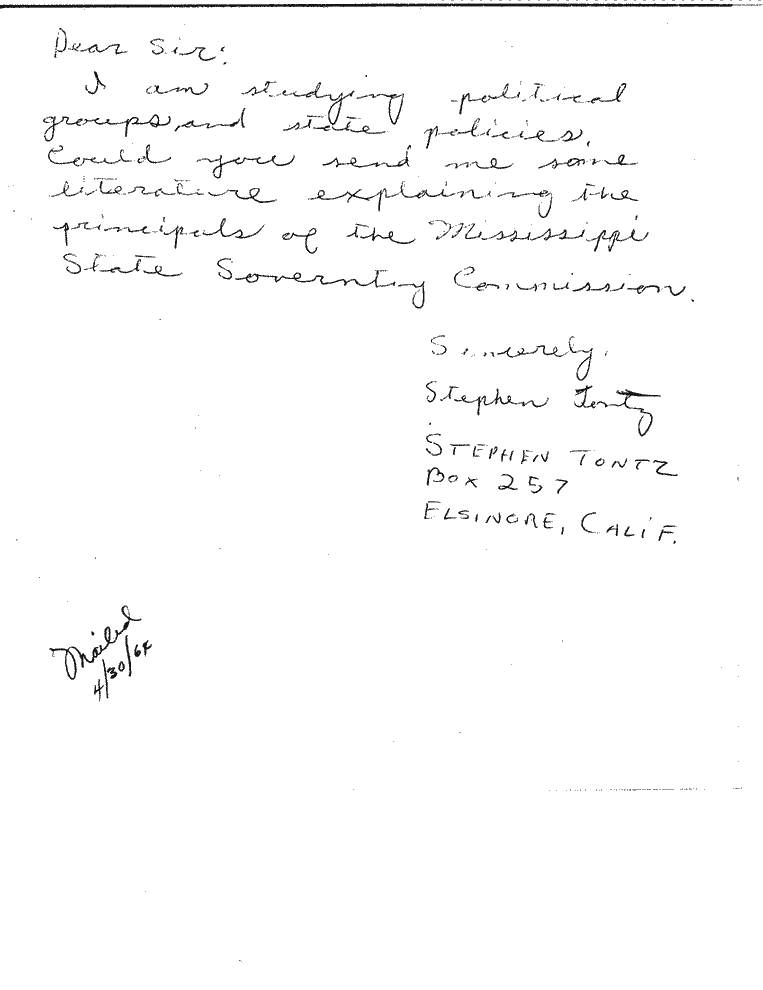 Dear Sir:
I am studying political
groups, and state policies.
Could you send me some
literature explaining the
principals of the Mississippi
State Soverntiy Commission.
Sincerely,
Stephen Tontz
STEPHEN TONTZ
BOX 257
ELSINORE, CALIF.
Mailed
4/30/64